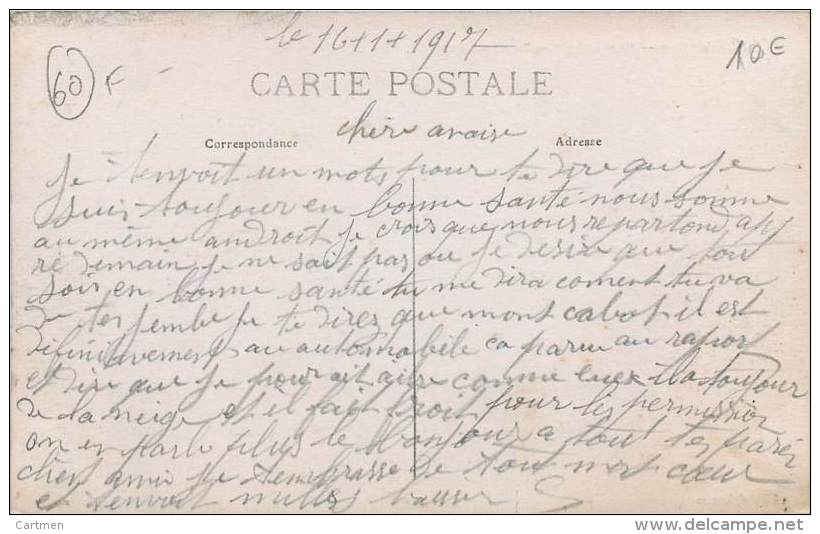 le 16+1+1917
60 F
10€
CARTE POSTALE
chère
Correspondance
Adresse
je t'envoit un mots pour te dire que je
suis toujour en bonne santé nous somme
au même androit je crois que nous repartond ap
rè demain je ne sait pas ou je desire que tout
soir en bonne santé tu me dira coment tu va
de tes jembe je te direz que mont cabot il est
definitivement au automobile ca paru au raport
et dire que je pour ait aitre comme eux il a toujour
de la neige et il fait froit pour les permission
on en parle plus le bonjour a tout tes
cher amie je t'embrasse de tout mont cœur
et t'envoit milles baiser
Cartmen
www.delcampe.net